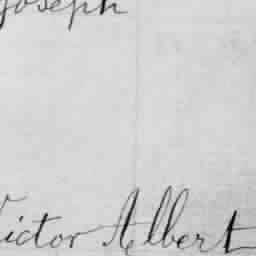 Joseph
Victor Albert